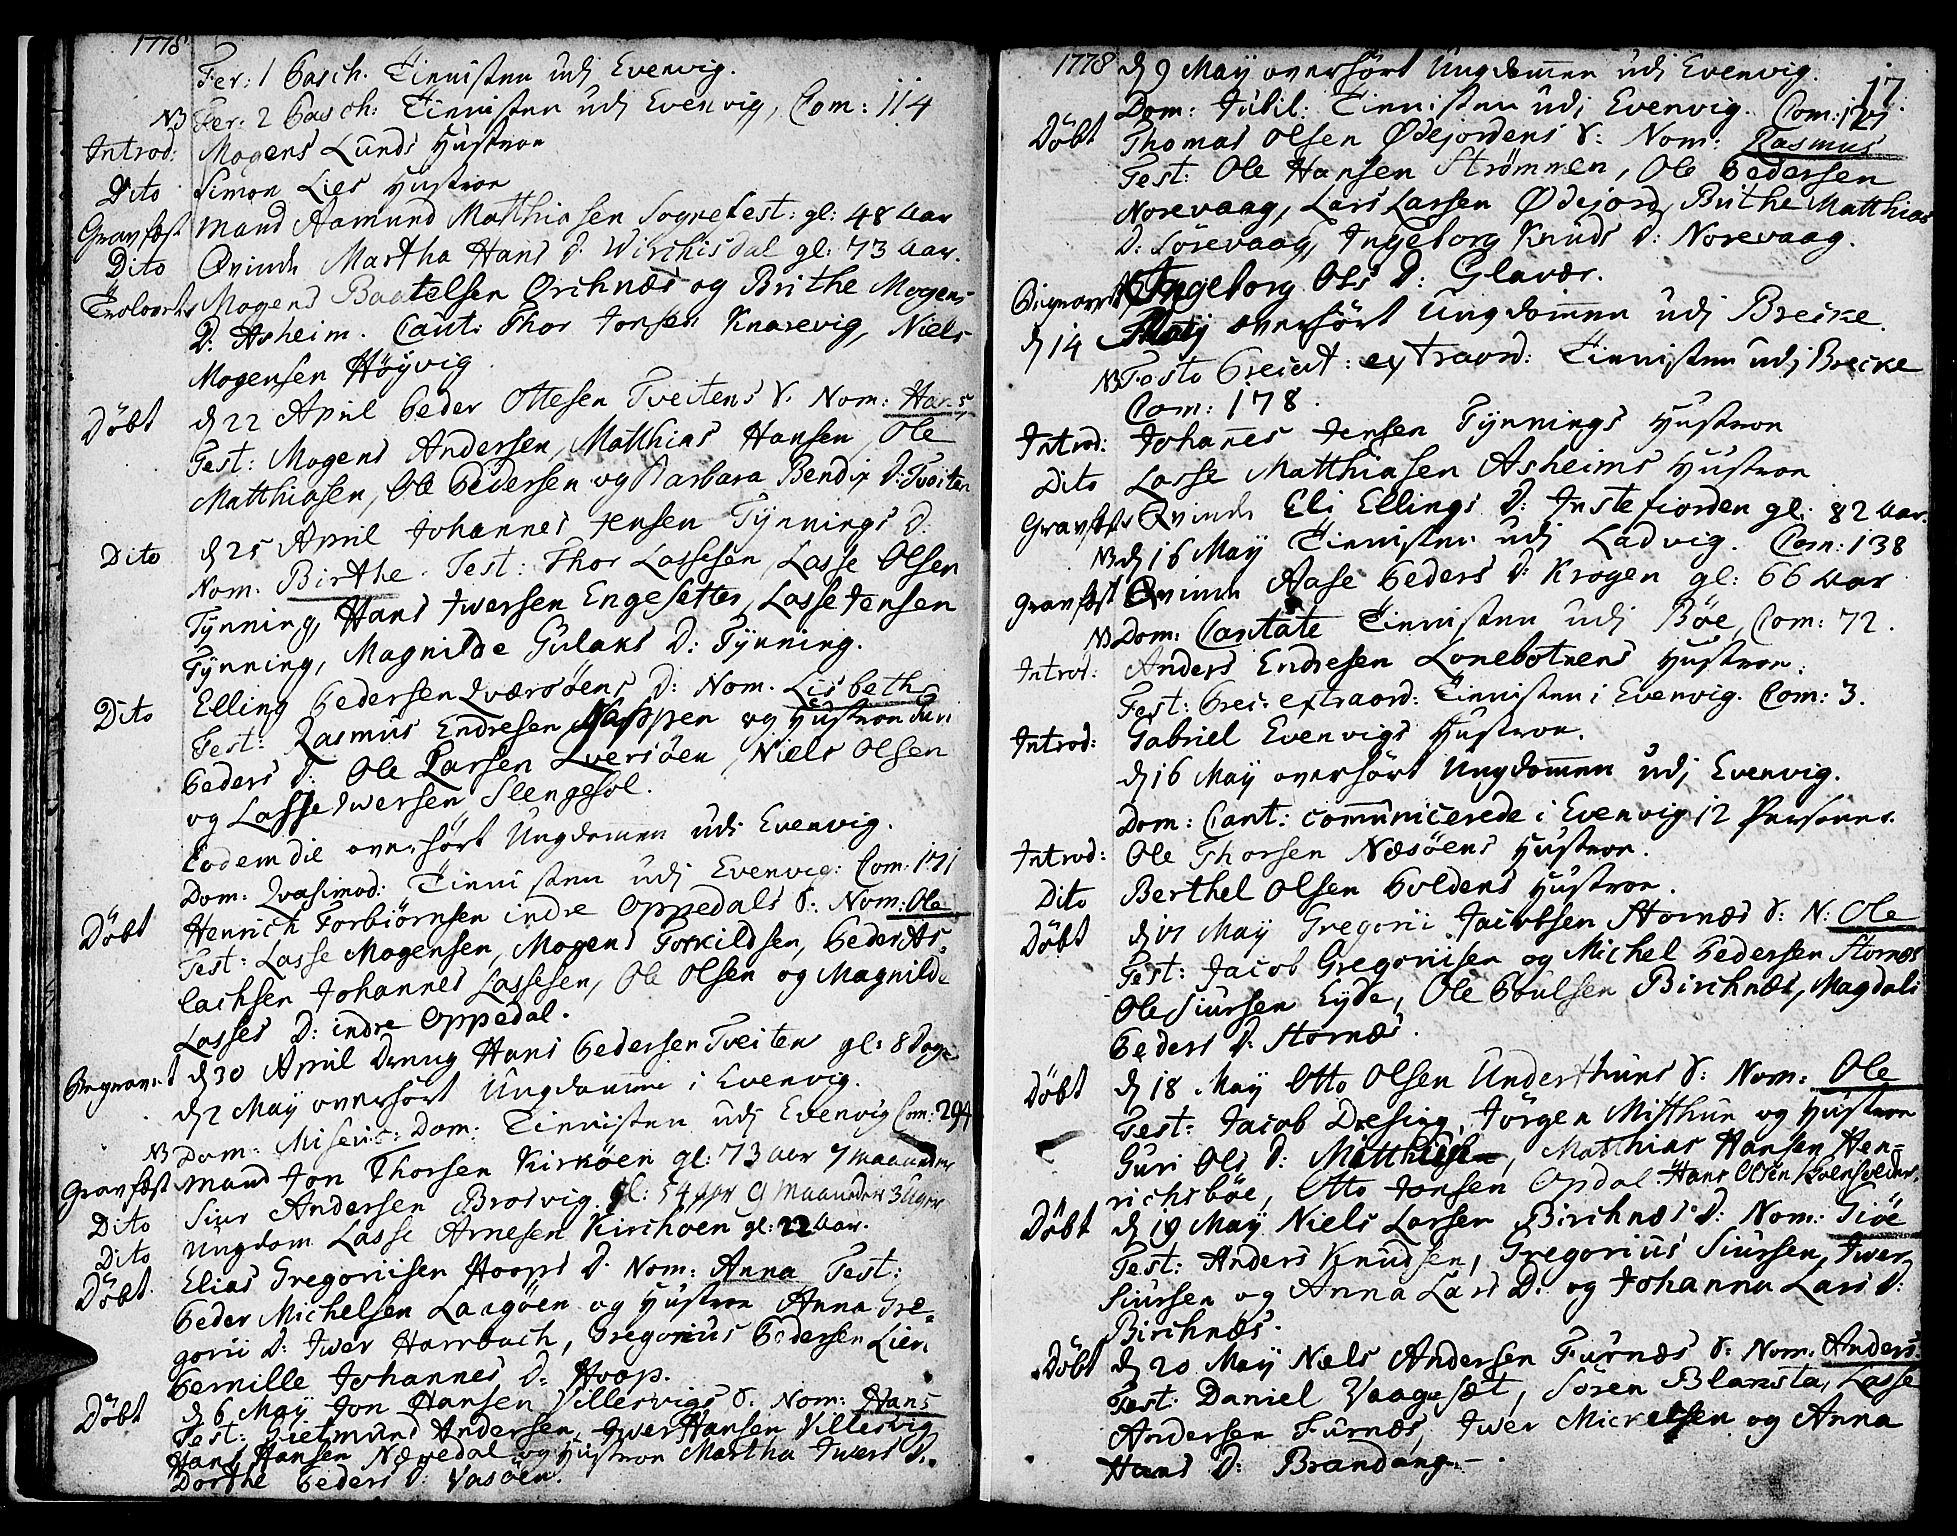 1778
Fer: 1 Pasch. Tienisten udj Evenvig.
NB Fer: 2 Pasch: Tienisten udj Evenvig, Com: 114
Introd: Mogens Lunds Hustroe
Dito Simon Lies Hustroe
Gravfæst Mand Aamund Matthiasen Sognefest: gl: 48 Aar
Dito Qvinde Martha Hans D: Wirchisdal gl: 73 Aar.
Trolovede Mogens Baatelsen Orchnæs og Brithe Mogens
D: Asheim. Caut: Thor Jonsen Knarevig, Niels
Mogensen Höyvig
Döbt d 22 April Peder Ottesen Tveitens S. Nom: Hans
Test: Mogens Andersen, Matthias Hansen, Ole
Matthiasen, Ole Pedersen og Barbara Bendix D: Tveiten
Dito d 25 April Johannes Jensen Tynnings D:
Nom. Birthe. Test: Thor Lassesen, Lasse Olsen
Tynning, Hans Iwersen Engesetter, Lasse Jensen
Tynning, Magnilde Gulaks D: Tynning.
Dito Elling Pedersen Qværsöens D: Nom. Lisbeth
Test: Rasmus Endresen Noppen og Hustroe Guri
Peders D: Ole Larsen Qversöen, Niels Olsen
og Lasse Iwersen Slengesol.
Eodem die overhört Ungdomen udi Evenvig.
Dom: Qvasimod: Tienisten udj Evenvig: Com: 171
Döbt Henrich Torbiörnsen indre Oppedals S: Nom: Ole
Test: Lasse Mogensen, Mogens Torkildsen, Peder As-
lachsen Johannes Lassesen, Ole Olsen og Magnilde
Lasses D: indre Oppedal.
Begravet d 30 April Dreng Hans Pedersen Tveiten gl: 8 Dage
d 2 Maÿ overhört Ungdommen i Evenvig.
NB Dom: Miseric: Dom: Tienisten udj Evenvig Com: 294
Gravfæst Mand Jon Thorsen Kirköen gl: 73 aar 7 maaneder
Dito Siur Andersen Brosvig gl: 54 aar 9 maaneder 3 Uger
Dito Ungdom Lasse Arnesen Kirchöen gl: 22 Aar.
Döbt Elias Gregoriisen Hoops D. Nom: Anna Test:
Peder Michelsen Laagöen og Hustroe Anna Gre-
gorii D: Iwer Harrbach, Gregorius Pedersen Lier,
Pernille Johannes D: Hoop.
Döbt d 6 Maÿ Jon Hansen Villesvigs S. Nom: Hans
Test: Gietmund Andersen, Iwer Hansen Villesvig
Hans Hansen Nævedal og Hustroe Martha Iwers D.
Dorthe Peders D: Vasöen.
1778 d 9 Maÿ overhört Ungdommen udj Evenvig.
17.
Dom: Jubil: Tienisten udj Evenvig. Com: 121
Döbt Thomas Olsen Ødejordens S: Nom: Rasmus
Test: Ole Hansen Strømmen, Ole Pedersen
Norevaag, Lars Larsen Ødejord, Brithe Matthias
D: Sörevaag, Ingeborg Knuds D: Norevaag.
Begravet Ingeborg Ols D: Glavær.
d 14 Maij overhört Ungdommen udj Brecke.
NB Festo Precat: extraord: Tienisten udj Brecke
Com: 178.
Introd: Johannes Jensen Tynnings Hustroe
Dito Lasse Matthiasen Asheims Hustroe
Gravfæst Qvinde Eli Ellings D: Instefiorden gl: 82 Aar.
NB d 16 Maÿ Tienisten udj Ladvig. Com: 138
Gravfæst Qvinde Aase Peders D: Krogen gl: 66 Aar
NB Dom: Cantate Tienisten udj Böe, Com: 72.
Introd: Anders Endresen Lonebotnens Hustroe.
Fest: Prec: extraord: Tienisten i Evenvig. Com: 3.
Introd: Gabriel Evenvigs Hustroe.
d 16 Maÿ overhört Ungdommen udj Evenvig.
Dom: Cant: communicerede i Evenvig 12 Personer.
Introd: Ole Thorsen Næsöens Hustroe.
Dito Berthel Olsen Poldens Hustroe.
Döbt d 17 Maÿ Gregorii Jacobsen Stornæs S: N: Ole
Test: Jacob Gregoriisen og Michel Pedersen Stornæs
Ole Siursen Eyde, Ole Poulsen Birchnæs, Magdali
Peders D: Stornæs.
Döbt d 18 Maÿ Otto Olsen Underthuns S: Nom: Ole
Test: Jacob Dresing, Jörgen Misthun og Hustroe
Guri Ols D: Matthiesen, Matthias Hansen Hen-
richsböe, Otto Jonsen Opdal Hans Olsen
Döbt d 19 Maÿ Niels Larsen Birchnæs D: Nom: Giöe
Test: Anders Knudsen, Gregorius Siursen, Iwer
Siursen og Anna Lars D: og Johanna Lars D:
Birchnæs.
Döbt d 20 Maÿ Niels Andersen Furnæs S: Nom: Anders
Test: Daniel Vaagesæt, Sören Blamsta, Lasse
Andersen Furnæs, Iwer Mickelsen og Anna
Hans D: Brandang.